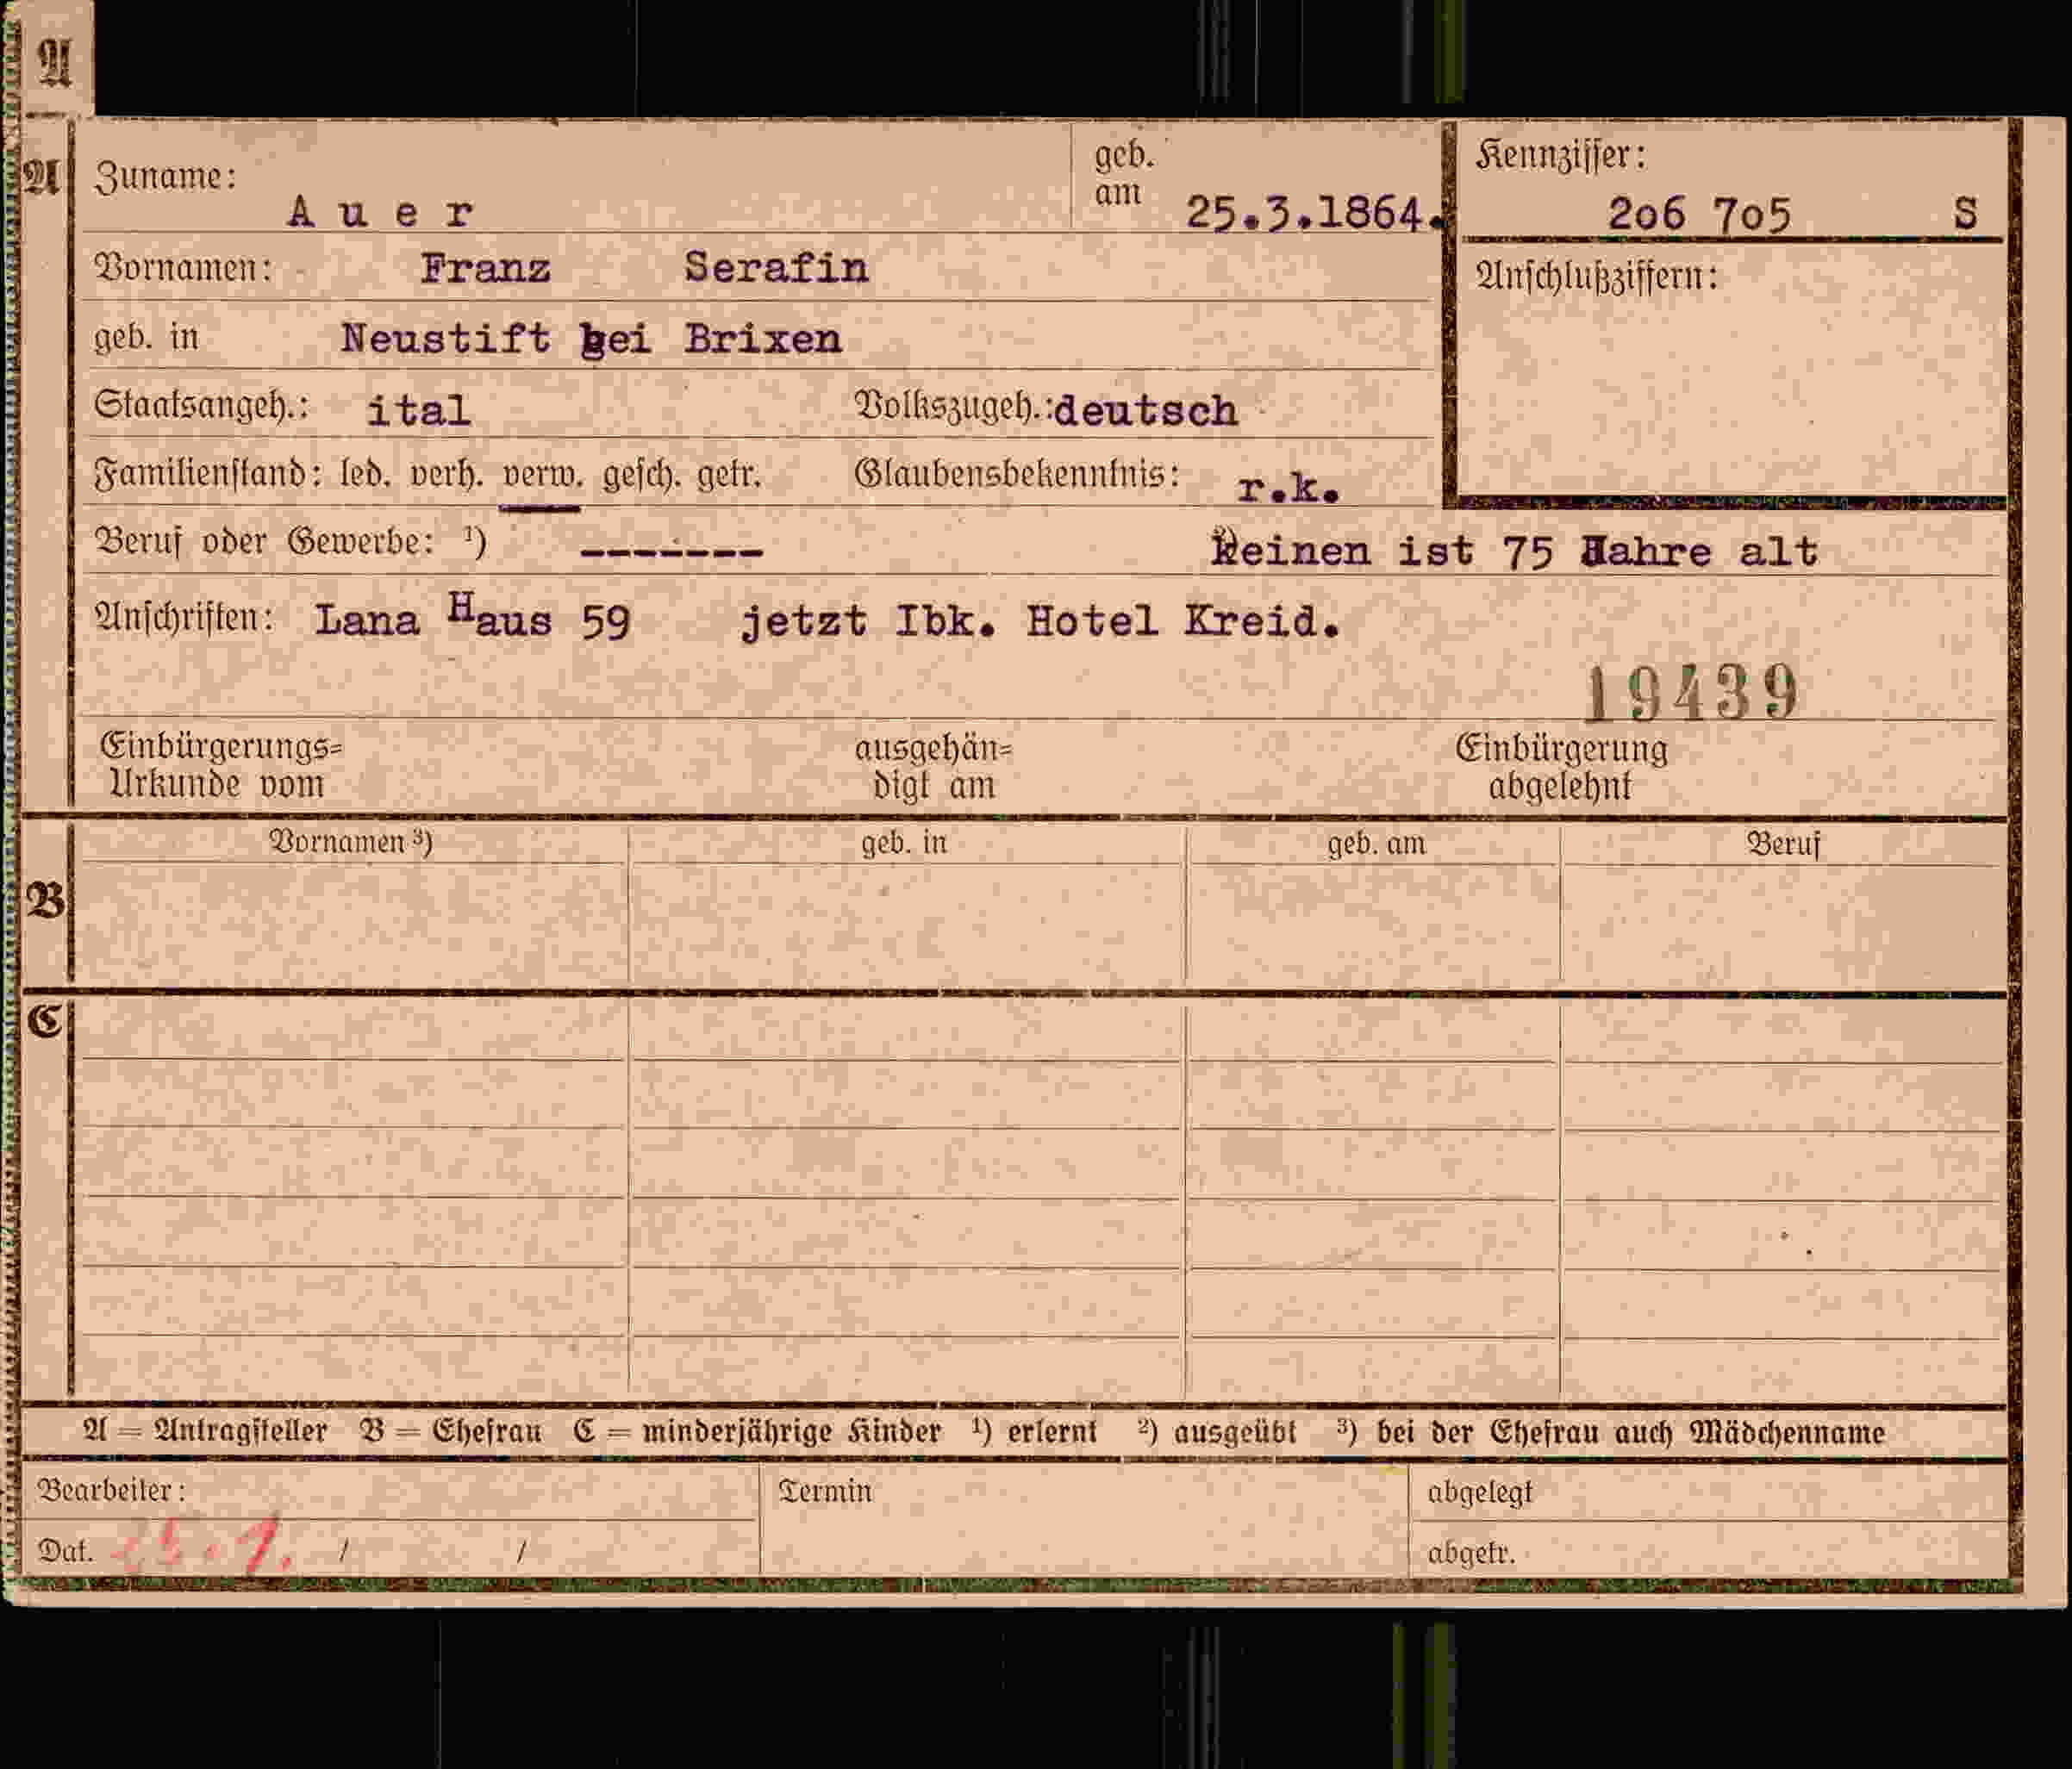 A
A
Zuname: Auer geb. am 25.3.1864. Kennziffer: 2o6 7o5 S
Vornamen: Franz Serafin Anschlußziffern:
geb. in Neustift bei Brixen
Staatsangeh.: ital Volkszugeh.: deutsch
Familienstand: led. verh. verw. gesch. getr. Glaubensbekenntnis: r.k.
Beruf oder Gewerbe: ¹) ------- ²) keinen ist 75 Jahre alt
Anschriften: Lana Haus 59 jetzt Ibk. Hotel Kreid.
19439
Einbürgerungs= ausgehän= Einbürgerung
Urkunde vom digt am abgelehnt
Vornamen ³) geb. in geb. am Beruf
B
C
A = Antragsteller B = Ehefrau C = minderjährige Kinder ¹) erlernt ²) ausgeübt ³) bei der Ehefrau auch Mädchenname
Bearbeiter: Termin abgelegt
Dat. / / abgetr.